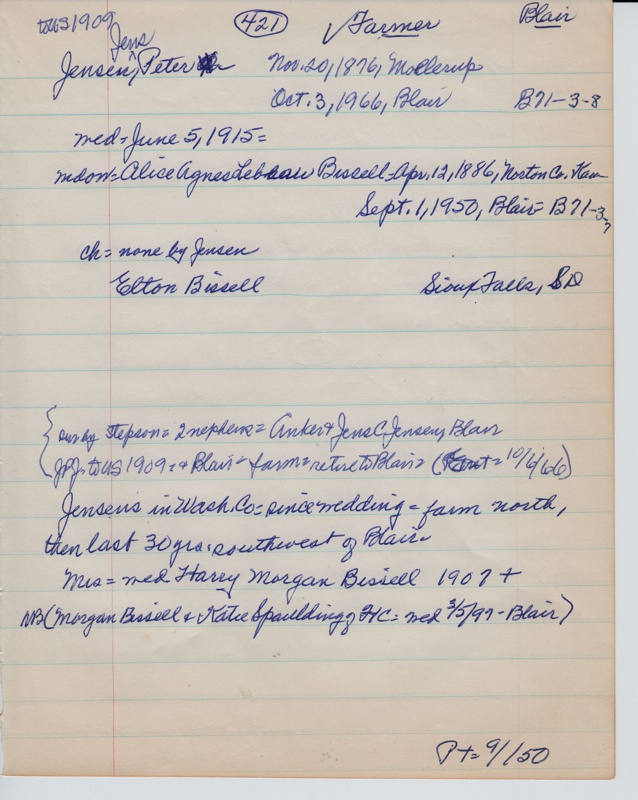 to US 1909 421 ✓ Farmer Blair
Jens
Jensen, Peter Nov. 20, 1876, Mollerup
Oct. 3, 1966, Blair B71-3-8
med = June 5, 1915 =
mdow = Alice Agnes Bissell = Apr. 12, 1886, Norton Co. Kan
Sept. 1, 1950, Blair = B71-3-7
ch = none by Jensen
Elton Bissell Sioux Falls, SD
sur by stepson = 2 nephews = Anker & Jens C Jensen, Blair
JPJ = to US 1909 = + Blair = farm = retire to Blair = ( = 10/6/66)
Jensens in Wash. Co = since wedding = farm north,
then last 30 yrs. southwest of Blair =
Mrs = med Harry Morgan Bissell 1907 +
NB (Morgan Bissell & Katie Spaulding of HC = med 3/5/97 - Blair)
Pt = 9/1/50